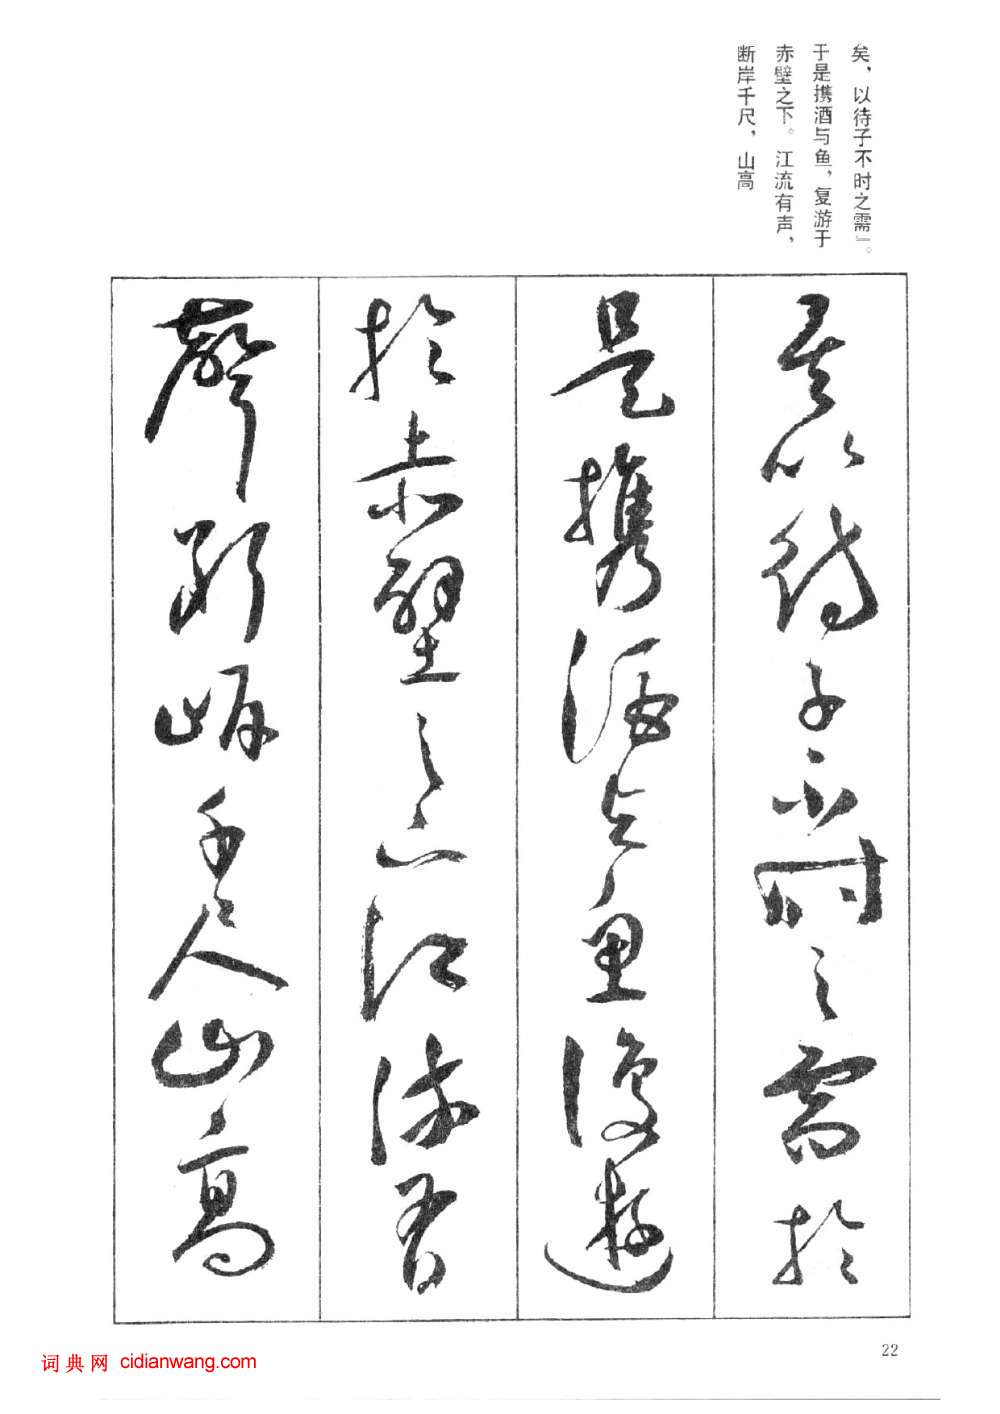 矣，以待子不时之需』。
于是携酒与鱼，复游于
赤壁之下。江流有声，
断岸千尺，山高
矣以待子不时之需於
是攜酒与鱼復遊
於赤壁之下江流有
聲斷岸千尺山高
22
词典网 cidianwang.com